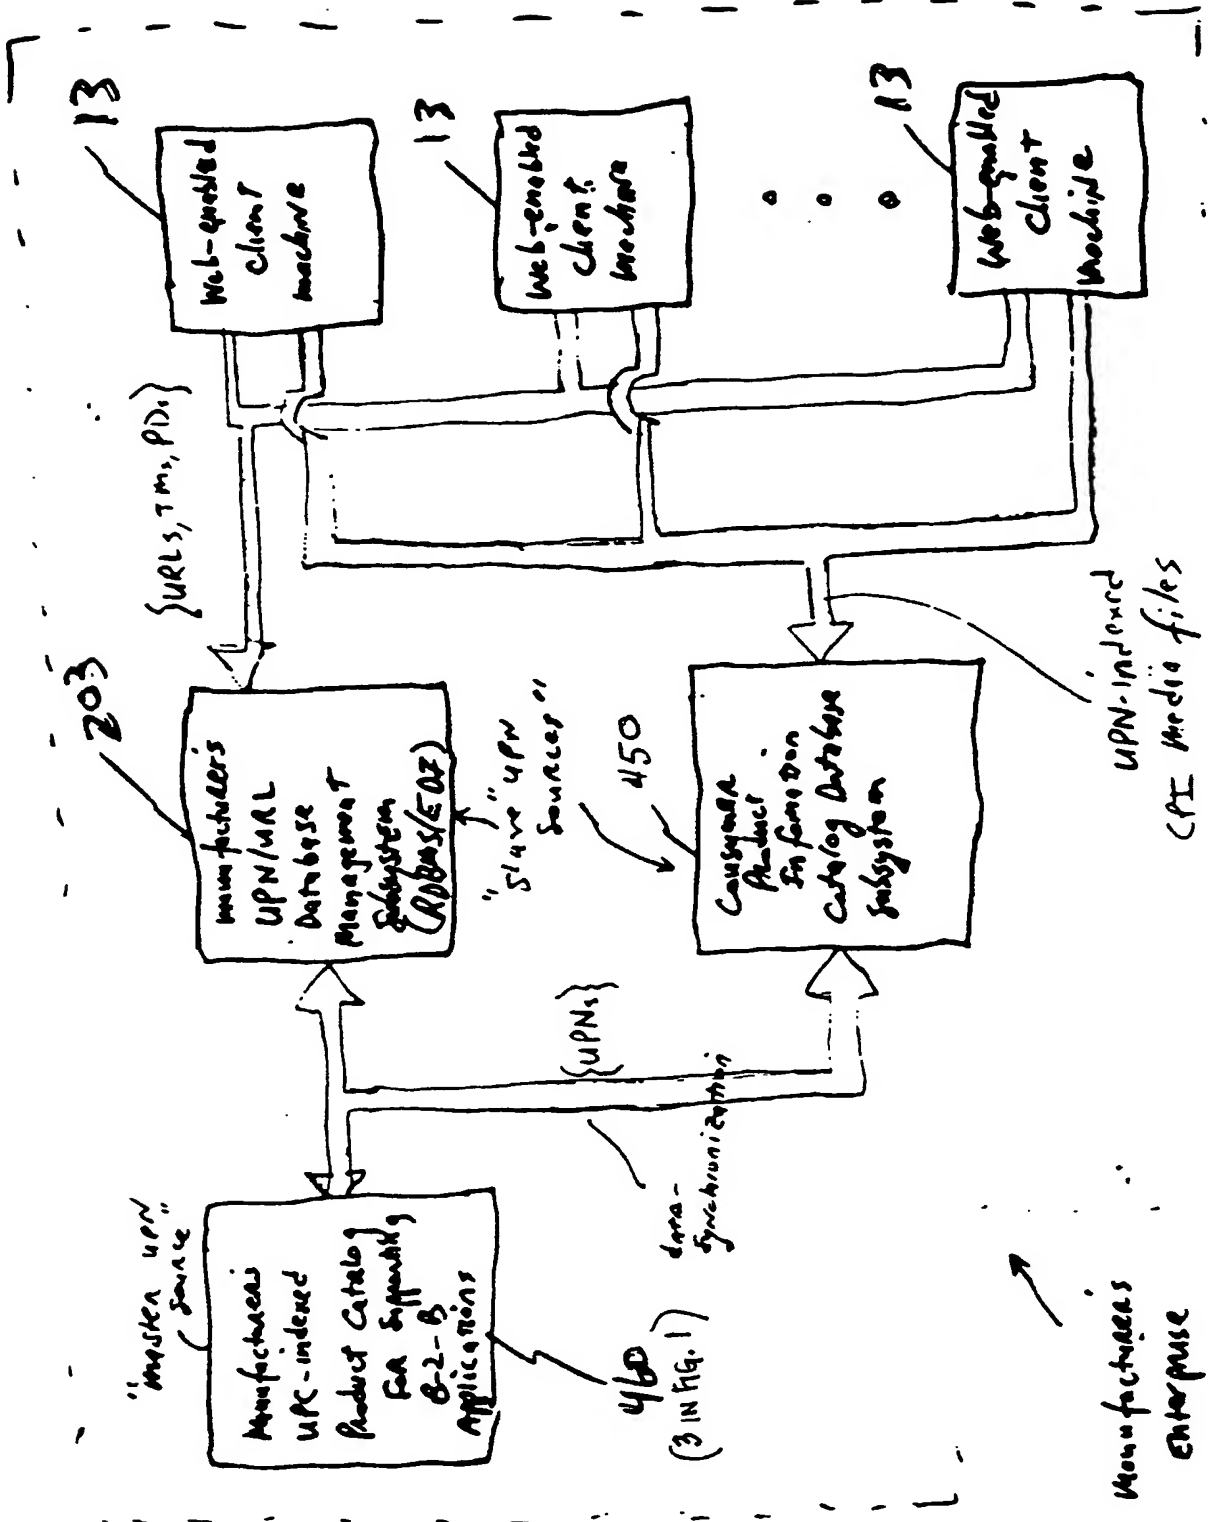 "master UPN
source"
Manufacturers
UPC-indexed
Product Catalog
For Supporting
B-2-B
Applications
460
(3 IN FIG. 1)
data-
synchronization
{UPNs}
203
manufacturers
UPN/URL
Database
Management
Subsystem
(RDBMS/EDI)
"slave" UPN
sources"
450
Consumer
Product
Information
Catalog Database
Subsystem
{URLs, TMs, PDs}
13
Web-enabled
client
machine
13
Web-enabled
client
machine
13
Web-enabled
client
machine
UPN-indexed
CPI media files
Manufacturers
Enterprise